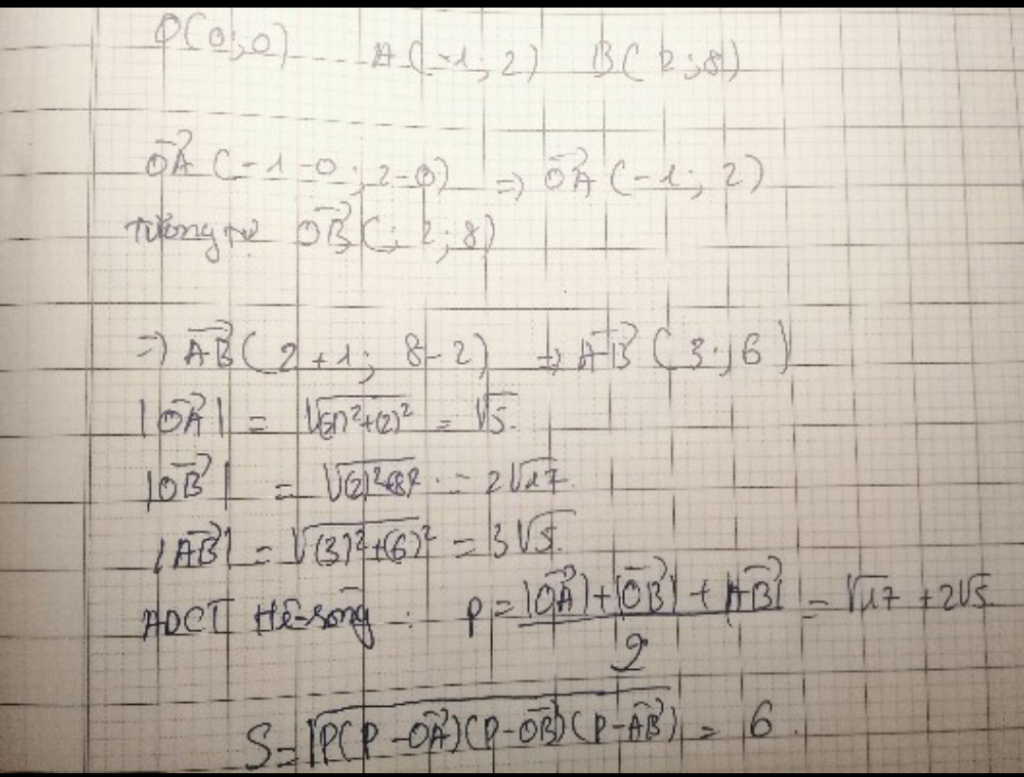 O(0;0) A(-1;2) B(2;8)
OA→(-1-0; 2-0) => OA→(-1; 2)
Tương tự OB→(; 2; 8)
=> AB→(2+1; 8-2) => AB→(3; 6)
|OA→| = √((-1)²+(2)²) = √5
|OB→| = √((2)²+8²) = 2√17
|AB→| = √((3)²+(6)²) = 3√5
ADCT Hê-rông : P = (|OA→|+|OB→|+|AB→|)/2 = √17 + 2√5
S = √(P(P-OA→)(P-OB→)(P-AB→)) = 6.